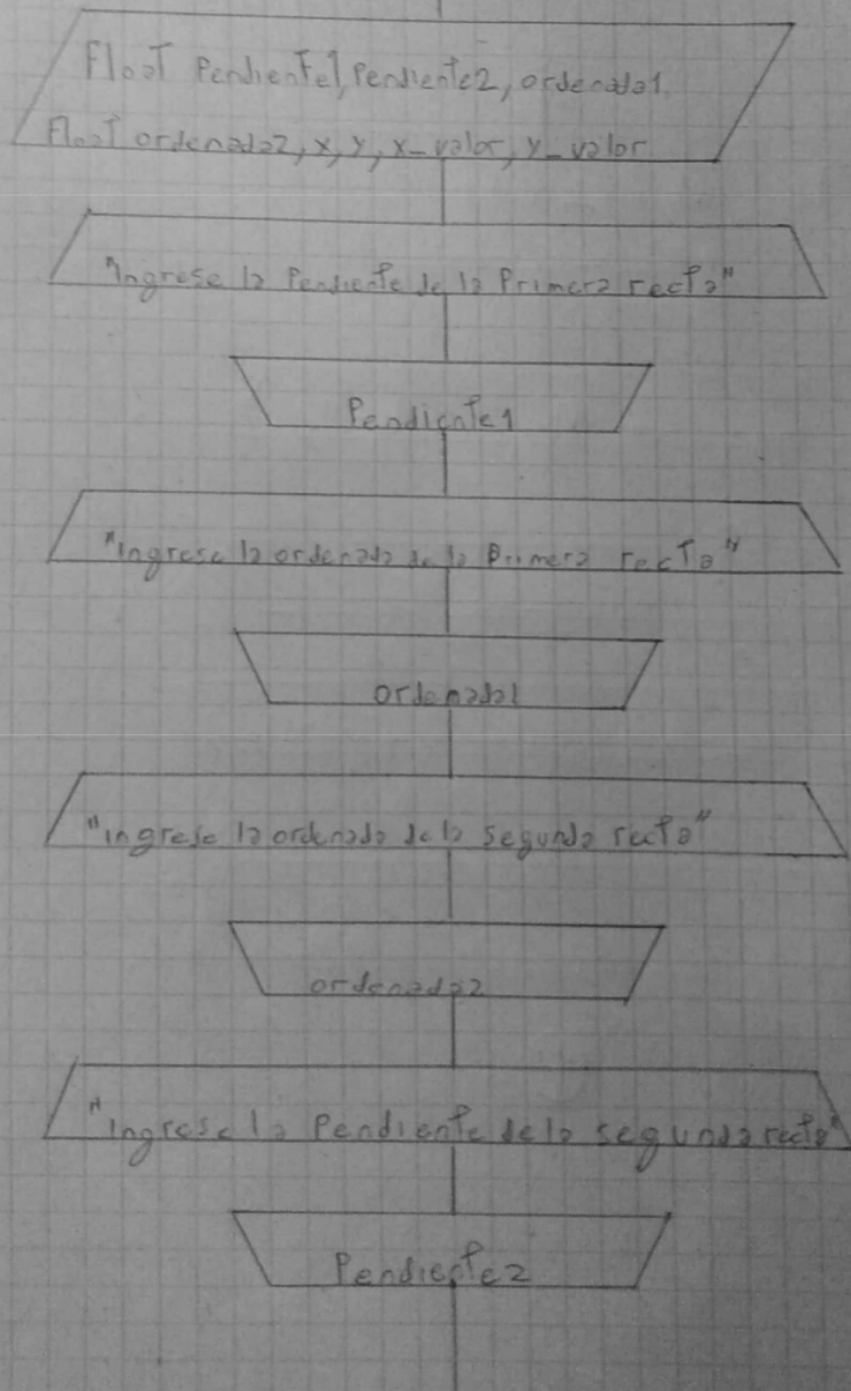 Float Pendiente1, Pendiente2, ordenada1
Float ordenada2, x, y, x_valor, y_valor
"Ingrese la Pendiente de la Primera recta"
Pendiente1
"ingrese la ordenada de la Primera recta"
ordenada1
"ingrese la ordenada de la segunda recta"
ordenada2
"Ingrese la Pendiente de la segunda recta"
Pendiente2